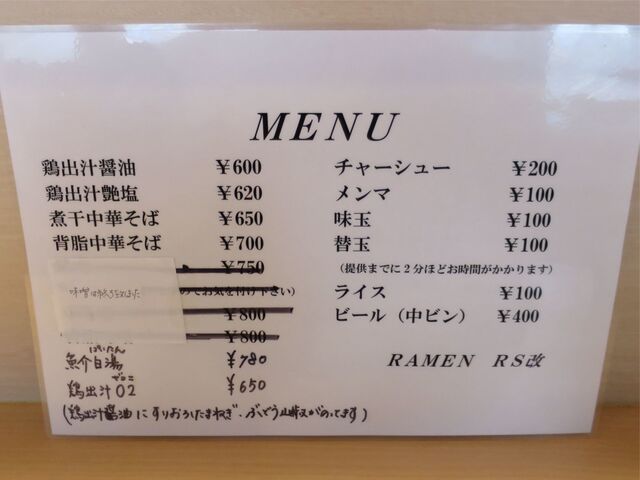 MENU
鶏出汁醤油 ￥600
鶏出汁艶塩 ￥620
煮干中華そば ￥650
背脂中華そば ￥700
￥750
のでお気を付け下さい）
￥800
￥800
ぱいたん
魚介白湯 ￥780
ゼロニ
鶏出汁02 ￥650
(鶏出汁醤油にすりおろしたまねぎ、ぶどう山椒がのってます)
チャーシュー ￥200
メンマ ￥100
味玉 ￥100
替玉 ￥100
（提供までに２分ほどお時間がかかります）
ライス ￥100
ビール（中ビン） ￥400
RAMEN RS改